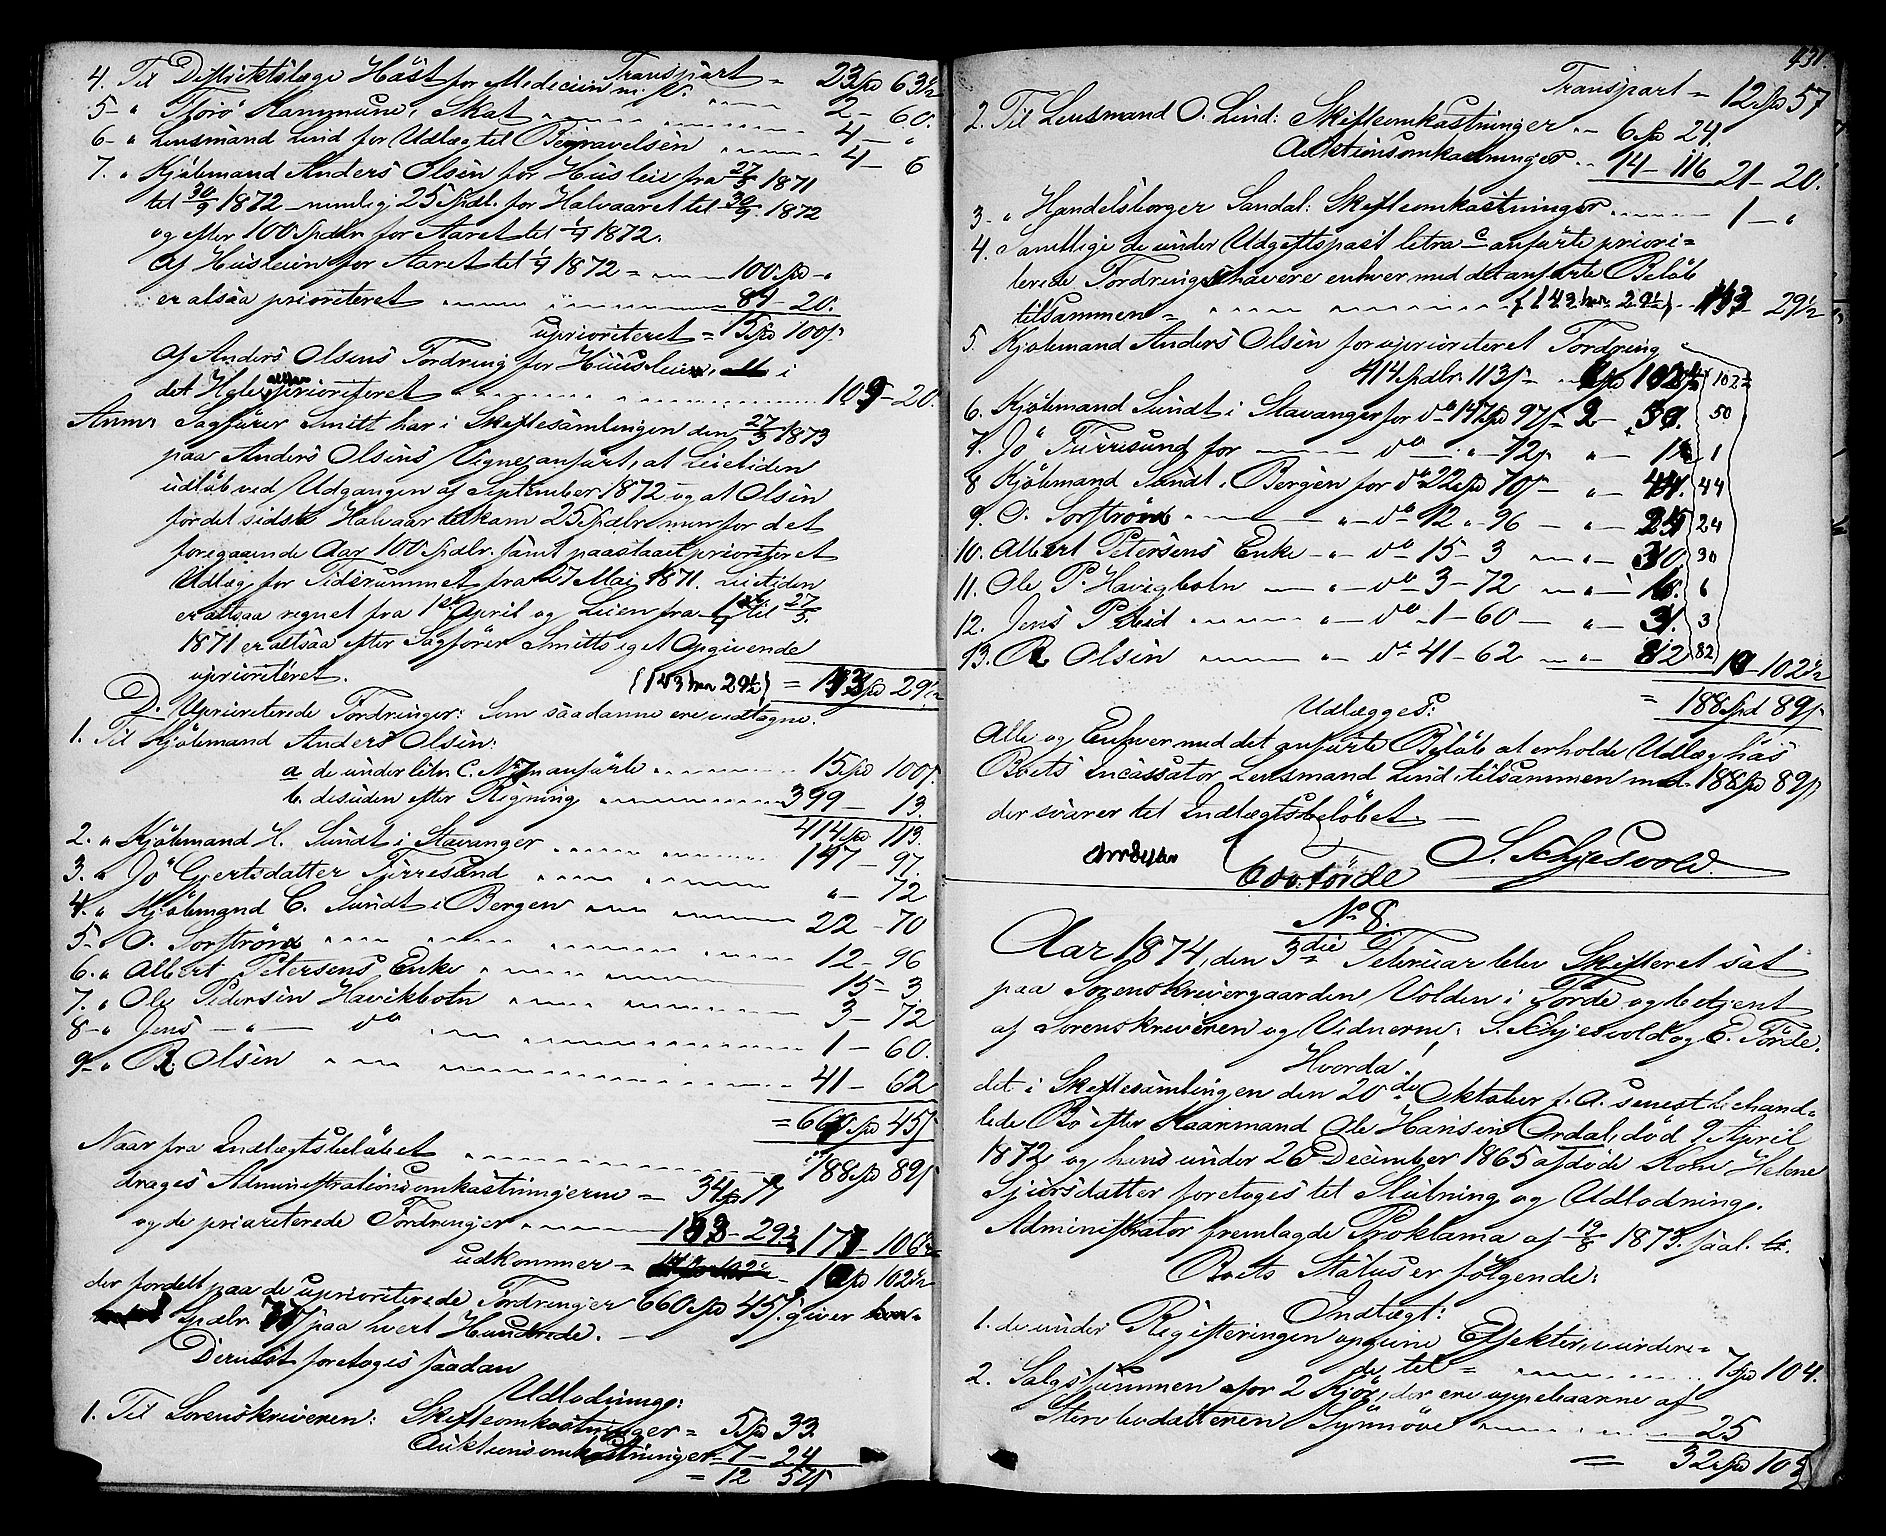 Transport = 23 Spd 63½
4. Til Distriktslæge Häst for Medecin m. v. 2 - 60.
5 - " Florö Kommune, Skat 4 - "
6 - " Lensmand Lind for Udlæg til Begravelsen 4 - 6
7. " Kjöbmand Anders Olsen for Husleie fra 27/5 1871
til 30/9 1872 - nemlig 25 Spdl. for Halvaaret til 30/9 1872
og efter 100 Spdlr. for Aaret til 1/4 1872.
Af Husleien for Aaret til 1/4 1872 = 100 Spd - "
er altsaa prioriteret 84 - 20.
uprioriteret = 15 Spd 100 s.
Af Anders Olsens Fordring for Huusleien, i
det Hele altsaa prioriteret 109 - 20.
Anm. Sagförer Smitt har i Skiftesamlingen den 27/3 1873
paa Anders Olsens Vegne anfört, at Leietiden
udlöb ved Udgangen af September 1872 og at Olsen
for det sidste Halvaar tilkom 25 Spdlr. men for det
foregaaende Aar 100 Spdlr. samt paastaaet prioriteret
Udlæg for Tidsrummet fra 27 Mai 1871. Leietiden
er altsaa regnet fra 1ste April og Leien fra 1/4 til 27/5
1871 er altsaa efter Sagförer Smitts eget Opgivende
uprioriteret. (143 29½) = 143 Spd 29½
D. Uprioriterede Fordringer: Som saadanne ere vedtagne.
1. Til Kjöbmand Anders Olsen:
a de under litr. C. No 7 anförte 15 Spd 100 s.
b. desuden efter Regning 399 - 13.
414 Spd 113.
2. " Kjöbmand H. Sundt i Stavanger 147 - 97.
3. " Jö Gjertsdatter Furresund " - 72
4. " Kjöbmand C. Sundt i Bergen 22 - 70
5 - " O. Torsström 12 - 96
6. " Albert Petersens Enke 15 - 3
7. " Ole Pedersen Havikbotn 3 - 72
8 - " Jens - " - do 1 - 60.
9 - " R. Olsen 41 - 62
= 660 Spd 45 s.
Naar fra Indtægtsbelöbet 188 Spd 89 s
drages Administrationsomkostningerne = 34 Spd 77
og de prioriterede Fordringer 143 - 29½ 177 - 106½
udkommer = 10 Spd 102½
der fordelt paa de uprioriterede Fordringer 660 Spd 45 s. giver
Spdlr. paa hvert Hundrede.
Derneest foretoges saadan
Udlodning:
1. Til Sorenskriveren: Skifteomkostninger = 5 Spd 33.
Auktionsomkostninger 7 - 24
= 12 57 s
431
Transport = 12 Spd 57
2. Til Lensmand O. Lind: Skifteomkostninger 6 Spd 24.
Auktionsomkostninger 14 - 116 21 - 20.
3 - " Handelsborger Sandal: Skifteomkostninger 1 - "
4. Samtlige de under Udgiftspost litra C anförte priori=
terede Fordringshavere enhver med det anförte Belöb
tilsammen = (143 29½) 143 29½
5. Kjöbmand Anders Olsen for uprioriteret Fordring
414 Spdlr. 113 s - 6 Spd 102 s 102
6. Kjöbmand Sundt i Stavanger for do 147 Spd 97 s - 2 - 50. 50
7. Jö Furresund for do " - 72 s " - 1 1
8 Kjöbmand Sundt i Bergen for do 22 Spd 70 s - " - 44. 44
9. O. Torsström " - do 12 " 96 - " - 24 24
10. Albert Petersens Enke - " - do 15 - 3 " - 30 30
11. Ole P. Havigbotn - " - do 3 - 72 - " - 6. 6
12. Jens P. Eid - " - do - 1 - 60 - " - 3. 3
13. R Olsen " - do 41 - 62 - " - 82 82 10 - 102½
= 188 Spd 89 s
Udlægges:
Alle og Enhver med det anförte Belöb at erholde Udlæg hos
Boets Incassator Lensmand Lind, tilsammen med 188 Spd 89 s
der svarer til Indtægtsbelöbet.
E. Förde S. Schjesvold.
No 8.
Aar 1874, den 3die Februar blev Skifteret sat
paa Sorenskrivergaarden Volden i Förde og betjent
af Sorenskriveren og Vidnerne: S. Schjesvold og E. Förde.
Hvorda!
det i Skiftesamlingen den 20de Oktober f. A. senest behand=
lede Bo efter Kaarmand Ole Hansen Ordal, död 9 April
1872, og hans under 26 December 1865 afdöde Kone, Helene
Sjursdatter foretoges til Slutning og Udlodning.
Administrator fremlagde Proklama af 19/8 1873. saal.
Boets Status er fölgende:
Indtægt:
1. de under Registeringen opgivne Effekter, vurdere=
de til = 7 Spd 104.
2. Salgssummen for 2 Kjör, der ere oppebaarne af
Stervbodatteren Synnöve 25
= 32 Spd 104